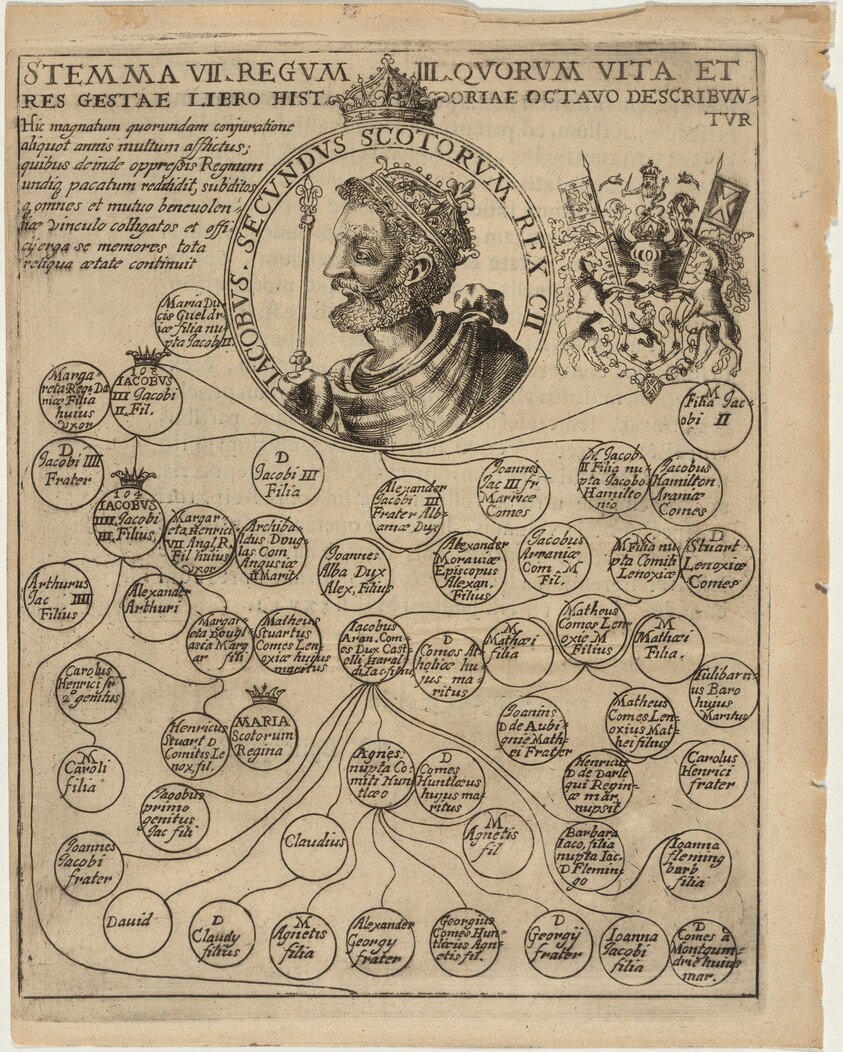 STEMMA VII. REGVM III. QVORVM VITA ET
RES GESTAE LIBRO HISTORIAE OCTAVO DESCRIBVN=
TVR
Hic magnatum quorundam conjuratione
aliquot annis multum afflictus;
quibus deinde oppreßis Regnum
undiq pacatum reddidit, subditos
q, omnes et mutuo benevolen-
tiæ vinculo colligatos et offi-
cij erga se memores tota
reliqua ætate continuit
IACOBVS. SECVNDVS SCOTORVM REX CII
Maria Du
cis Gueldr
iæ filia nu
pta Jacob II
Marga=
reta Regis Da
niæ Filia
huius
vxor
103
IACOBVS
III Jacobi
II. Fil.
M
Filia Jac
obi II
D
Jacobi IIII
Frater
104
IACOBVS
IIII. Jacobi
III. Filius,
D
Jacobi III
Filia
Alexander
Jacobi III
Frater Alb-
aniæ Dux
Joannes
Jac III fr
Marriæ
Comes
M Jacob.
II Filia nu
pta Jacobo
Hamilto
nio
Jacobus
Hamilton
Araniæ
Comes
Margar
eta Henrici
VII Angl. R.
Fil huius
vxor
Archiba
ldus Doug
las Com
Angusiæ
II Marit.
Joannes
Alba Dux
Alex, Filius
Alexander
Moraviæ
Episcopus
Alexan.
Filius
Jacobus
Arraniæ
Com M
Fil.
M Filia nu
pta Comiti
Lenoxiæ
D
Stuart
Lenoxiæ
Comes
Arthurus
Jac IIII
Filius
Alexander
Arthuri
Margar
eta Dougl
asia Marg
ar fili
Matheus
Stuartus
Comes Len
oxiæ huius
maritus
Iacobus
Aran. Com
es Dux Cast
elli Haral
di Iac. filiu
D
Comes At
holiæ hu
jus ma
ritus
M
Mathæi
filia
Matheus
Comes Len
oxiæ M
Filius
M
Mathæi
Filia.
Carolus
Henrici fr
2 genitus
Tulibarn
us Baro
huius
Maritus
Henricus
Stuart D
Comitis Le
nox, fil.
MARIA
Scotorum
Regina
Joanins
D de Aubi
gnie Math
ei Frater
Matheus
Comes Len
oxius Mat
hei filius
M
Caroli
filia
Jacobus
primo
genitus
Jac fili
Agnes
nupta Co
miti Hun
tlæo
D
Comes
Huntlæus
hujus ma
ritus
Henricus
D de Darle
qui Regin
æ mar
nupsit
Carolus
Henrici
frater
Joannes
Jacobi
frater
Claudius
M
Agnetis
fil
Barbara
Iaco, filia
nupta Iac.
D Flemin
go
Ioanna
fleming
barb
filia
Dauid
D
Claudy
filius
M
Agnetis
filia
Alexander
Georgy
frater
Georgius
Comes Hun
tlæus Agn
etis fil.
D
Georgij
frater
Ioanna
Jacobi
filia
D
Comes à
Montgum
drie huius
mar.